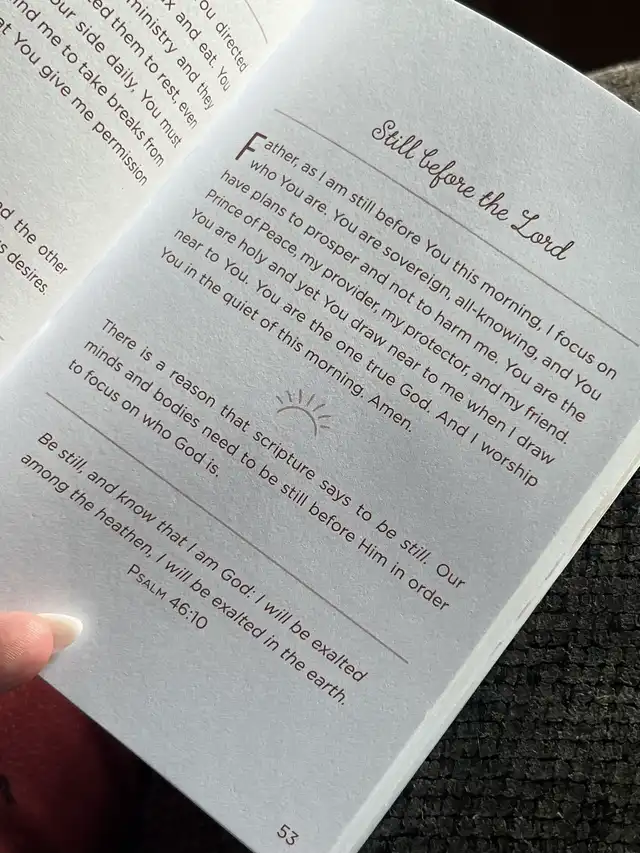 You directed
x and eat. You
ministry and they
ed them to rest, even
our side daily. You must
ind me to take breaks from
at. You give me permission
d the other
s desires.
Still before the Lord
Father, as I am still before You this morning, I focus on
who You are. You are sovereign, all-knowing, and You
have plans to prosper and not to harm me. You are the
Prince of Peace, my provider, my protector, and my friend.
You are holy and yet You draw near to me when I draw
near to You. You are the one true God. And I worship
You in the quiet of this morning. Amen.
There is a reason that scripture says to be still. Our
minds and bodies need to be still before Him in order
to focus on who God is.
Be still, and know that I am God: I will be exalted
among the heathen, I will be exalted in the earth.
Psalm 46:10
53